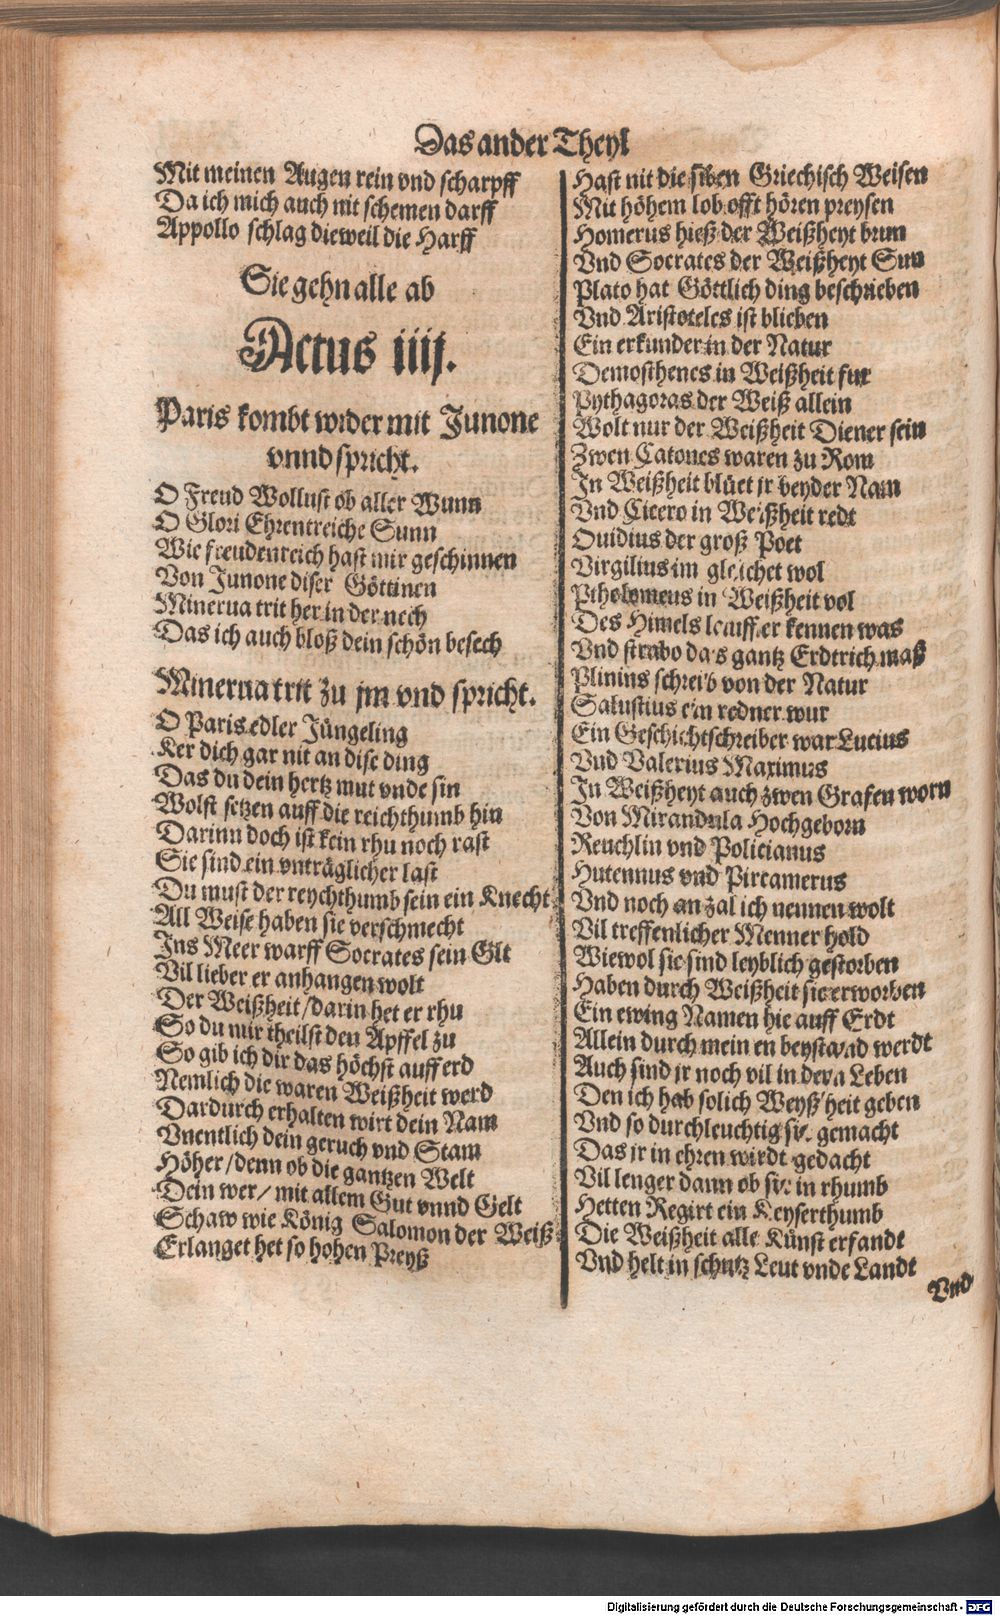 Das ander Theyl
Mit meinen Augen rein vnd scharpff
Da ich mich auch nit schemen darff
Appollo schlag dieweil die Harff
Sie gehn alle ab
Actus iiij.
Paris kombt wider mit Junone
vnnd spricht.
O Freud Wollust ob aller Wunn
O Glori Ehrentreiche Sunn
Wie freudenreich hast mir geschinnen
Von Junone diser Göttinen
Minerua trit her in der nech
Das ich auch bloß dein schön besech
Minerua trit zu jm vnd spricht.
O Paris edler Jüngeling
Ker dich gar nit an dise ding
Das du dein hertz mut vnde sin
Wolst setzen auff die reichthumb hin
Darinn doch ist kein rhu noch rast
Sie sind ein vnträglicher last
Du must der reychthumb sein ein Knecht
All Weise haben sie verschmecht
Ins Meer warff Socrates sein Glt
Vil lieber er anhangen wolt
Der Weißheit / darin het er rhu
So du mir theilst den Apffel zu
So gib ich dir das höchst auff erd
Nemlich die waren Weißheit werd
Dardurch erhalten wirt dein Nam
Vnentlich dein geruch vnd Stam
Höher / denn ob die gantzen Welt
Dein wer / mit allem Gut vnnd Gelt
Schaw wie König Salomon der Weiß
Erlanget het so hohen Preyß
Hast nit die siben Griechisch Weisen
Mit höhem lob offt hören preysen
Homerus hieß der Weißheyt brun
Vnd Socrates der Weißheyt Sun
Plato hat Göttlich ding beschrieben
Vnd Aristoteles ist blieben
Ein erkunder in der Natur
Demosthenes in Weißheit fur
Pythagoras der Weiß allein
Wolt nur der Weißheit Diener sein
Zwen Catones waren zu Rom
In Weißheit blüet jr beyder Nam
Vnd Cicero in Weißheit redt
Ouidius der groß Poet
Virgilius im gleichet wol
Ptholomeus in Weißheit vol
Des Himels leuff er kennen was
Vnd strabo das gantz Erdtrich maß
Plinins schreib von der Natur
Salustius ein redner wur
Ein Geschichtschreiber war Lucius
Vnd Valerius Maximus
In Weißheyt auch zwen Grafen worn
Von Mirandula Hochgeborn
Reuchlin vnd Policianus
Hutennus vnd Pircamerus
Vnd noch an zal ich nennen wolt
Vil treffenlicher Menner hold
Wiewol sie sind leyblich gestorben
Haben durch Weißheit sie erworben
Ein ewing Namen hie auff Erdt
Allein durch mein en beystand werdt
Auch sind jr noch vil in dem Leben
Den ich hab solich Weyßheit geben
Vnd so durchleuchtig sie gemacht
Das jr in ehren wirdt gedacht
Vil lenger dann ob sie in rhumb
Hetten Regirt ein Keyserthumb
Die Weißheit alle Künst erfandt
Vnd helt in schutz Leut vnde Landt
Vnd
Digitalisierung gefördert durch die Deutsche Forschungsgemeinschaft - DFG